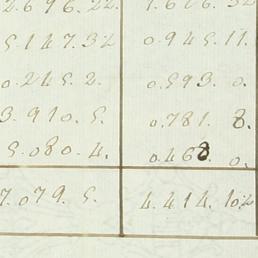 2.696.22. 1.616.3½
5.147.3½ 0.945.11.
0.245.2. 0.593.0.
3.910.5. 0.781.8.
5.080.4. 0.468.0.
7.079.5. 4.414.10½